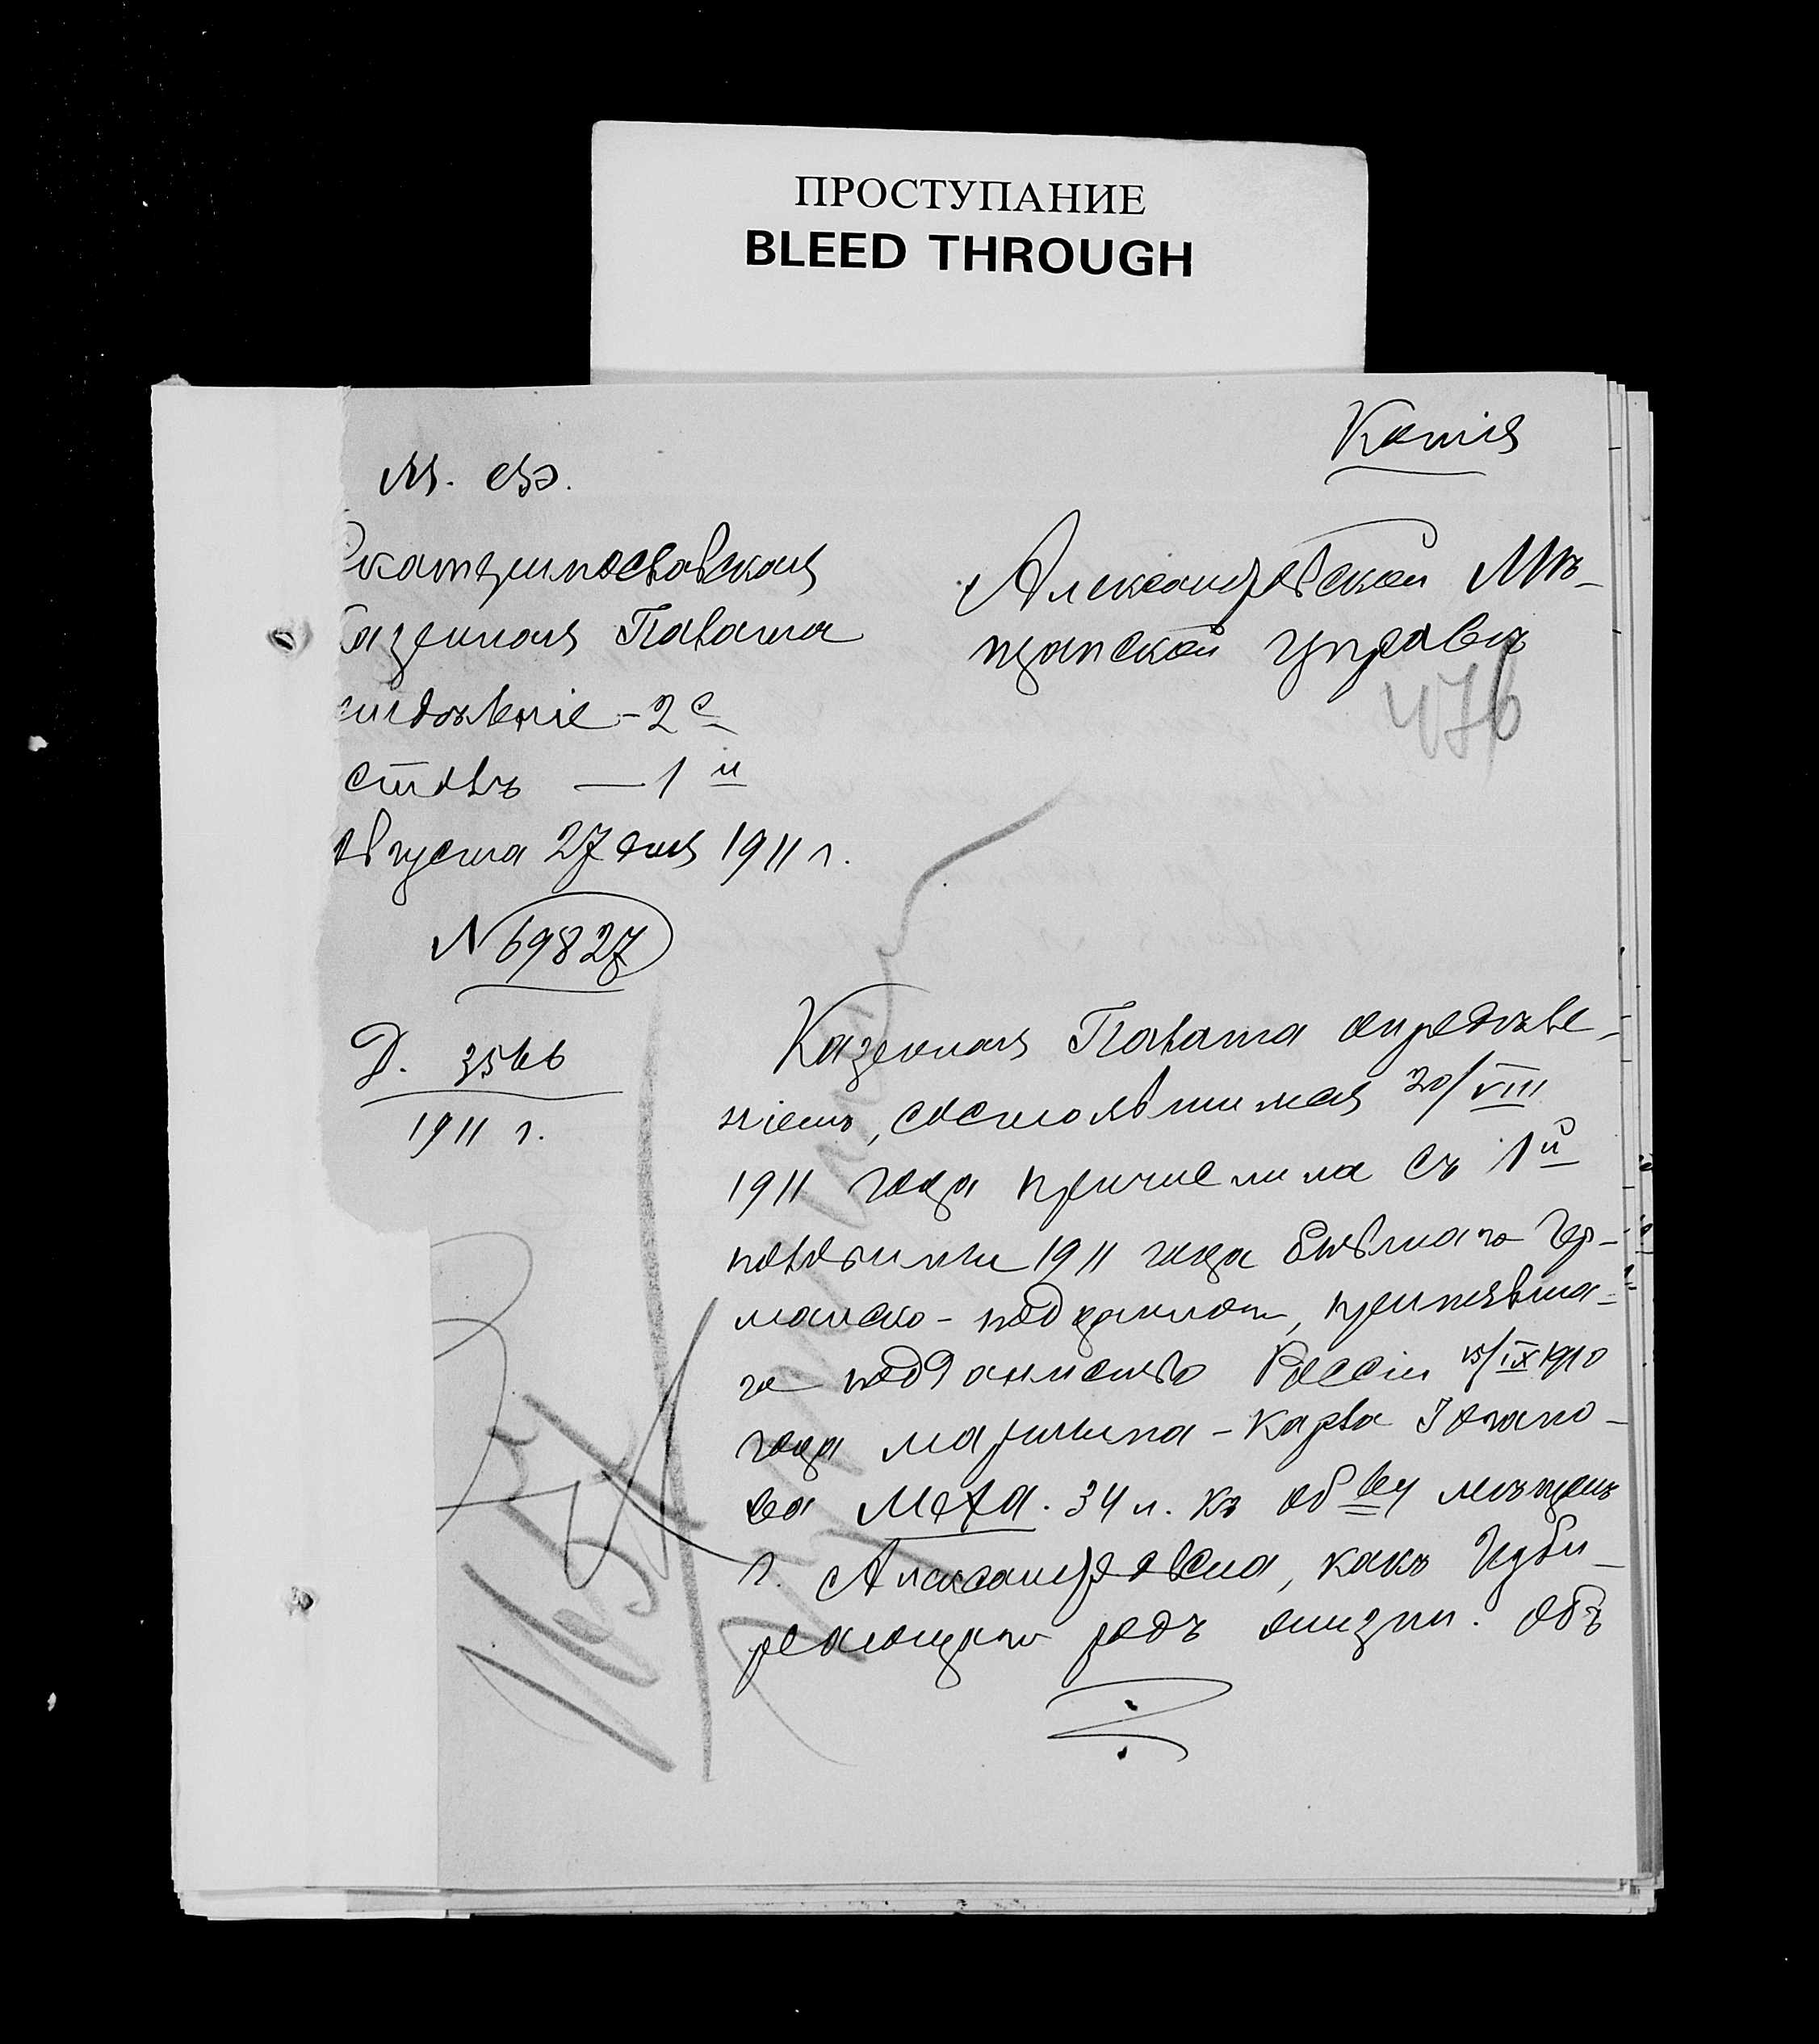 ПРОСТУПАНИЕ
BLEED THROUGH
Копія
М. Ф.
Екатеринославская
Казенная Палата
Отдѣленіе - 2е
Столъ — 1й
Августа 27 дня 1911 г.
N 69827
Д. 3566
1911 г.
Александровской Мѣ-
щанской Управѣ
476
Казенная Палата опредѣле-
ніемъ, состоявшимся 20/VIII
1911 года причислила съ 1й
половины 1911 года бывшаго Гер-
манско-подданнаго, принявша-
го подданство Россіи 15/IX 1910
года - Карла
ва Меха. 34 л. къ об ву мѣщанъ
г. Александровска, какъ Изби-
рающаго родъ жизни. Объ